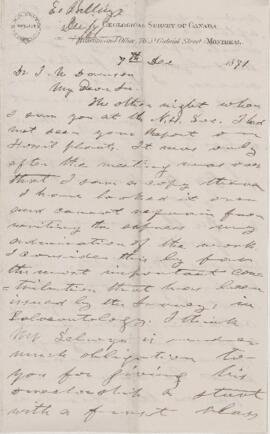 E. Billings
GEOLOGICAL SURVEY OF CANADA
Museum and Office, 76 St Gabriel Street MONTREAL
7th Dec 1871
Dr J. W. Dawson
My Dear Sir
The other night when
I saw you at the N.H. Soc. I had
not seen your Report on
Fossil plants. It was only
after the meeting was over
that I saw a copy
I have looked it over
and cannot refrain from
writing to express my
admiration of the work
I consider this by far
the most important con
tribution that has been
issued by the Survey, in
Palaeontology. I think
Mr Selwyn is under
much obligation to
you for giving his
a start
with a first class